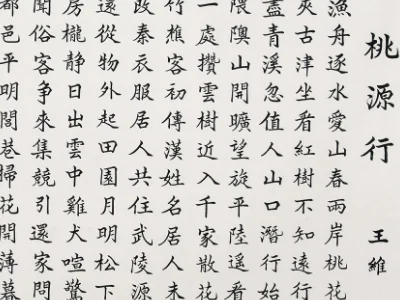 桃源行
王維
漁舟逐水愛山春兩岸桃花
夾古津坐看紅樹不知遠行
盡青溪忽值人山口潛行始
隈隩山開曠望旋平陸遙看
一處攢雲樹近入千家散花
竹樵客初傳漢姓名居人未
改秦衣服居人共住武陵源
還從物外起田園月明松下
房櫳靜日出雲中雞犬喧驚
聞俗客爭來集競引還家問
都邑平明閭巷掃花開薄暮